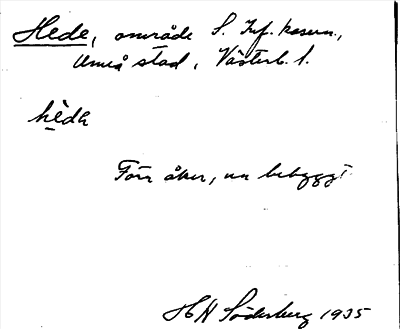 Hede, område S. Inf. kasern.,
Umeå stad, Västerb. l.
hèda
Förr åker, nu bebyggt.
H N Söderberg 1935